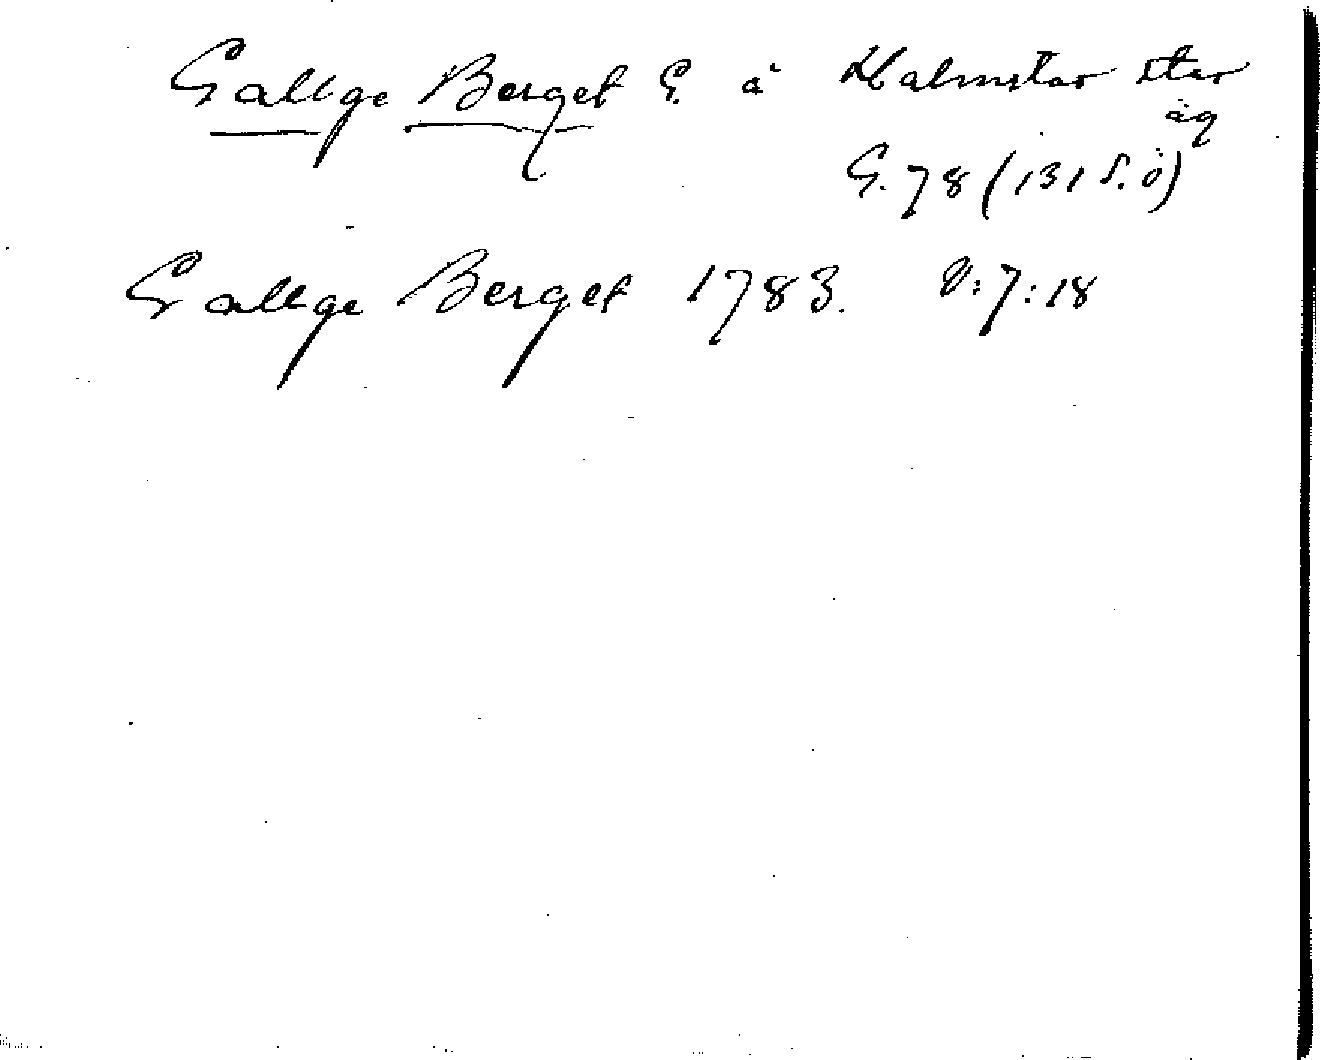 Gallge Berget G. å Halmstar star
äg
G. 78 (131 S. ö)
Gallge Berget 1783. V:7:18